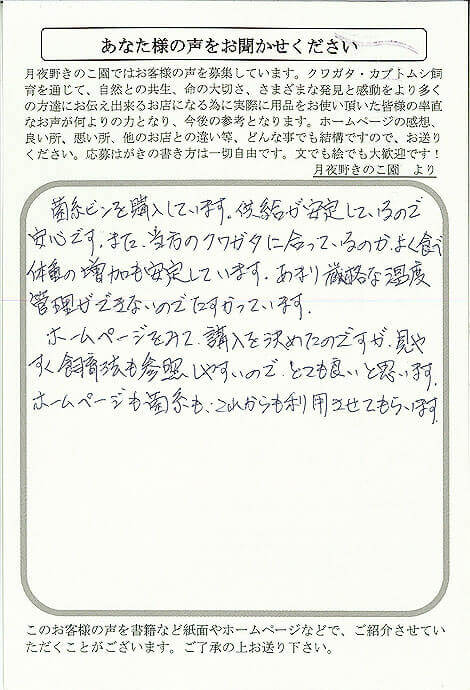 あなた様の声をお聞かせください
月夜野きのこ園ではお客様の声を募集しています。クワガタ・カブトムシ飼
育を通じて、自然との共生、命の大切さ、さまざまな発見と感動をより多く
の方達にお伝え出来るお店になる為に実際に用品をお使い頂いた皆様の率直
なお声が何よりの力となり、今後の参考となります。ホームページの感想、
良い所、悪い所、他のお店との違い等、どんな事でも結構ですので、お送り
ください。応募はがきの書き方は一切自由です。文でも絵でも大歓迎です!
月夜野きのこ園 より
菌糸ビンを購入しています。供給が安定しているので
安心です。また、当方のクワガタに合っているのか、よく食べ
体重の増加も安定しています。あまり厳格な温度
管理ができないのでたすかっています。
ホームページをみて、購入を決めたのですが、見や
すく飼育法も参照しやすいので、とても良いと思います。
ホームページも菌糸も、これからも利用させてもらいます。
このお客様の声を書籍など紙面やホームページなどで、ご紹介させてい
ただくことがございます。ご了承の上お送り下さい。